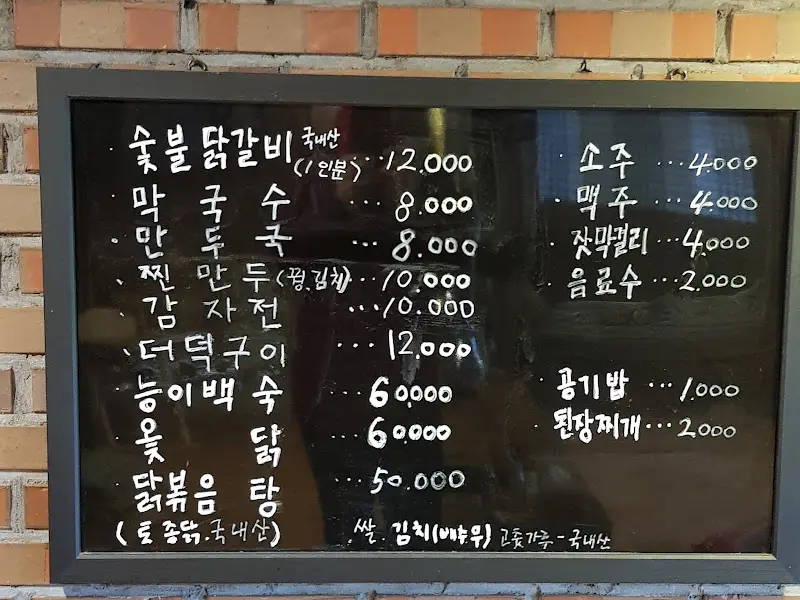 숯불닭갈비 국내산 (1인분) ... 12.000
막국수 ... 8.000
만두국 ... 8.000
찐만두 (꿩.김치) ... 10.000
감자전 ... 10.000
더덕구이 ... 12.000
능이백숙 ... 60.000
옻닭 ... 60.000
닭볶음탕 ... 50.000
(토종닭.국내산)
소주 ... 4.000
맥주 ... 4.000
잣막걸리 ... 4.000
음료수 ... 2.000
공기밥 ... 1.000
된장찌개 ... 2.000
쌀. 김치(배추,무) 고춧가루 - 국내산